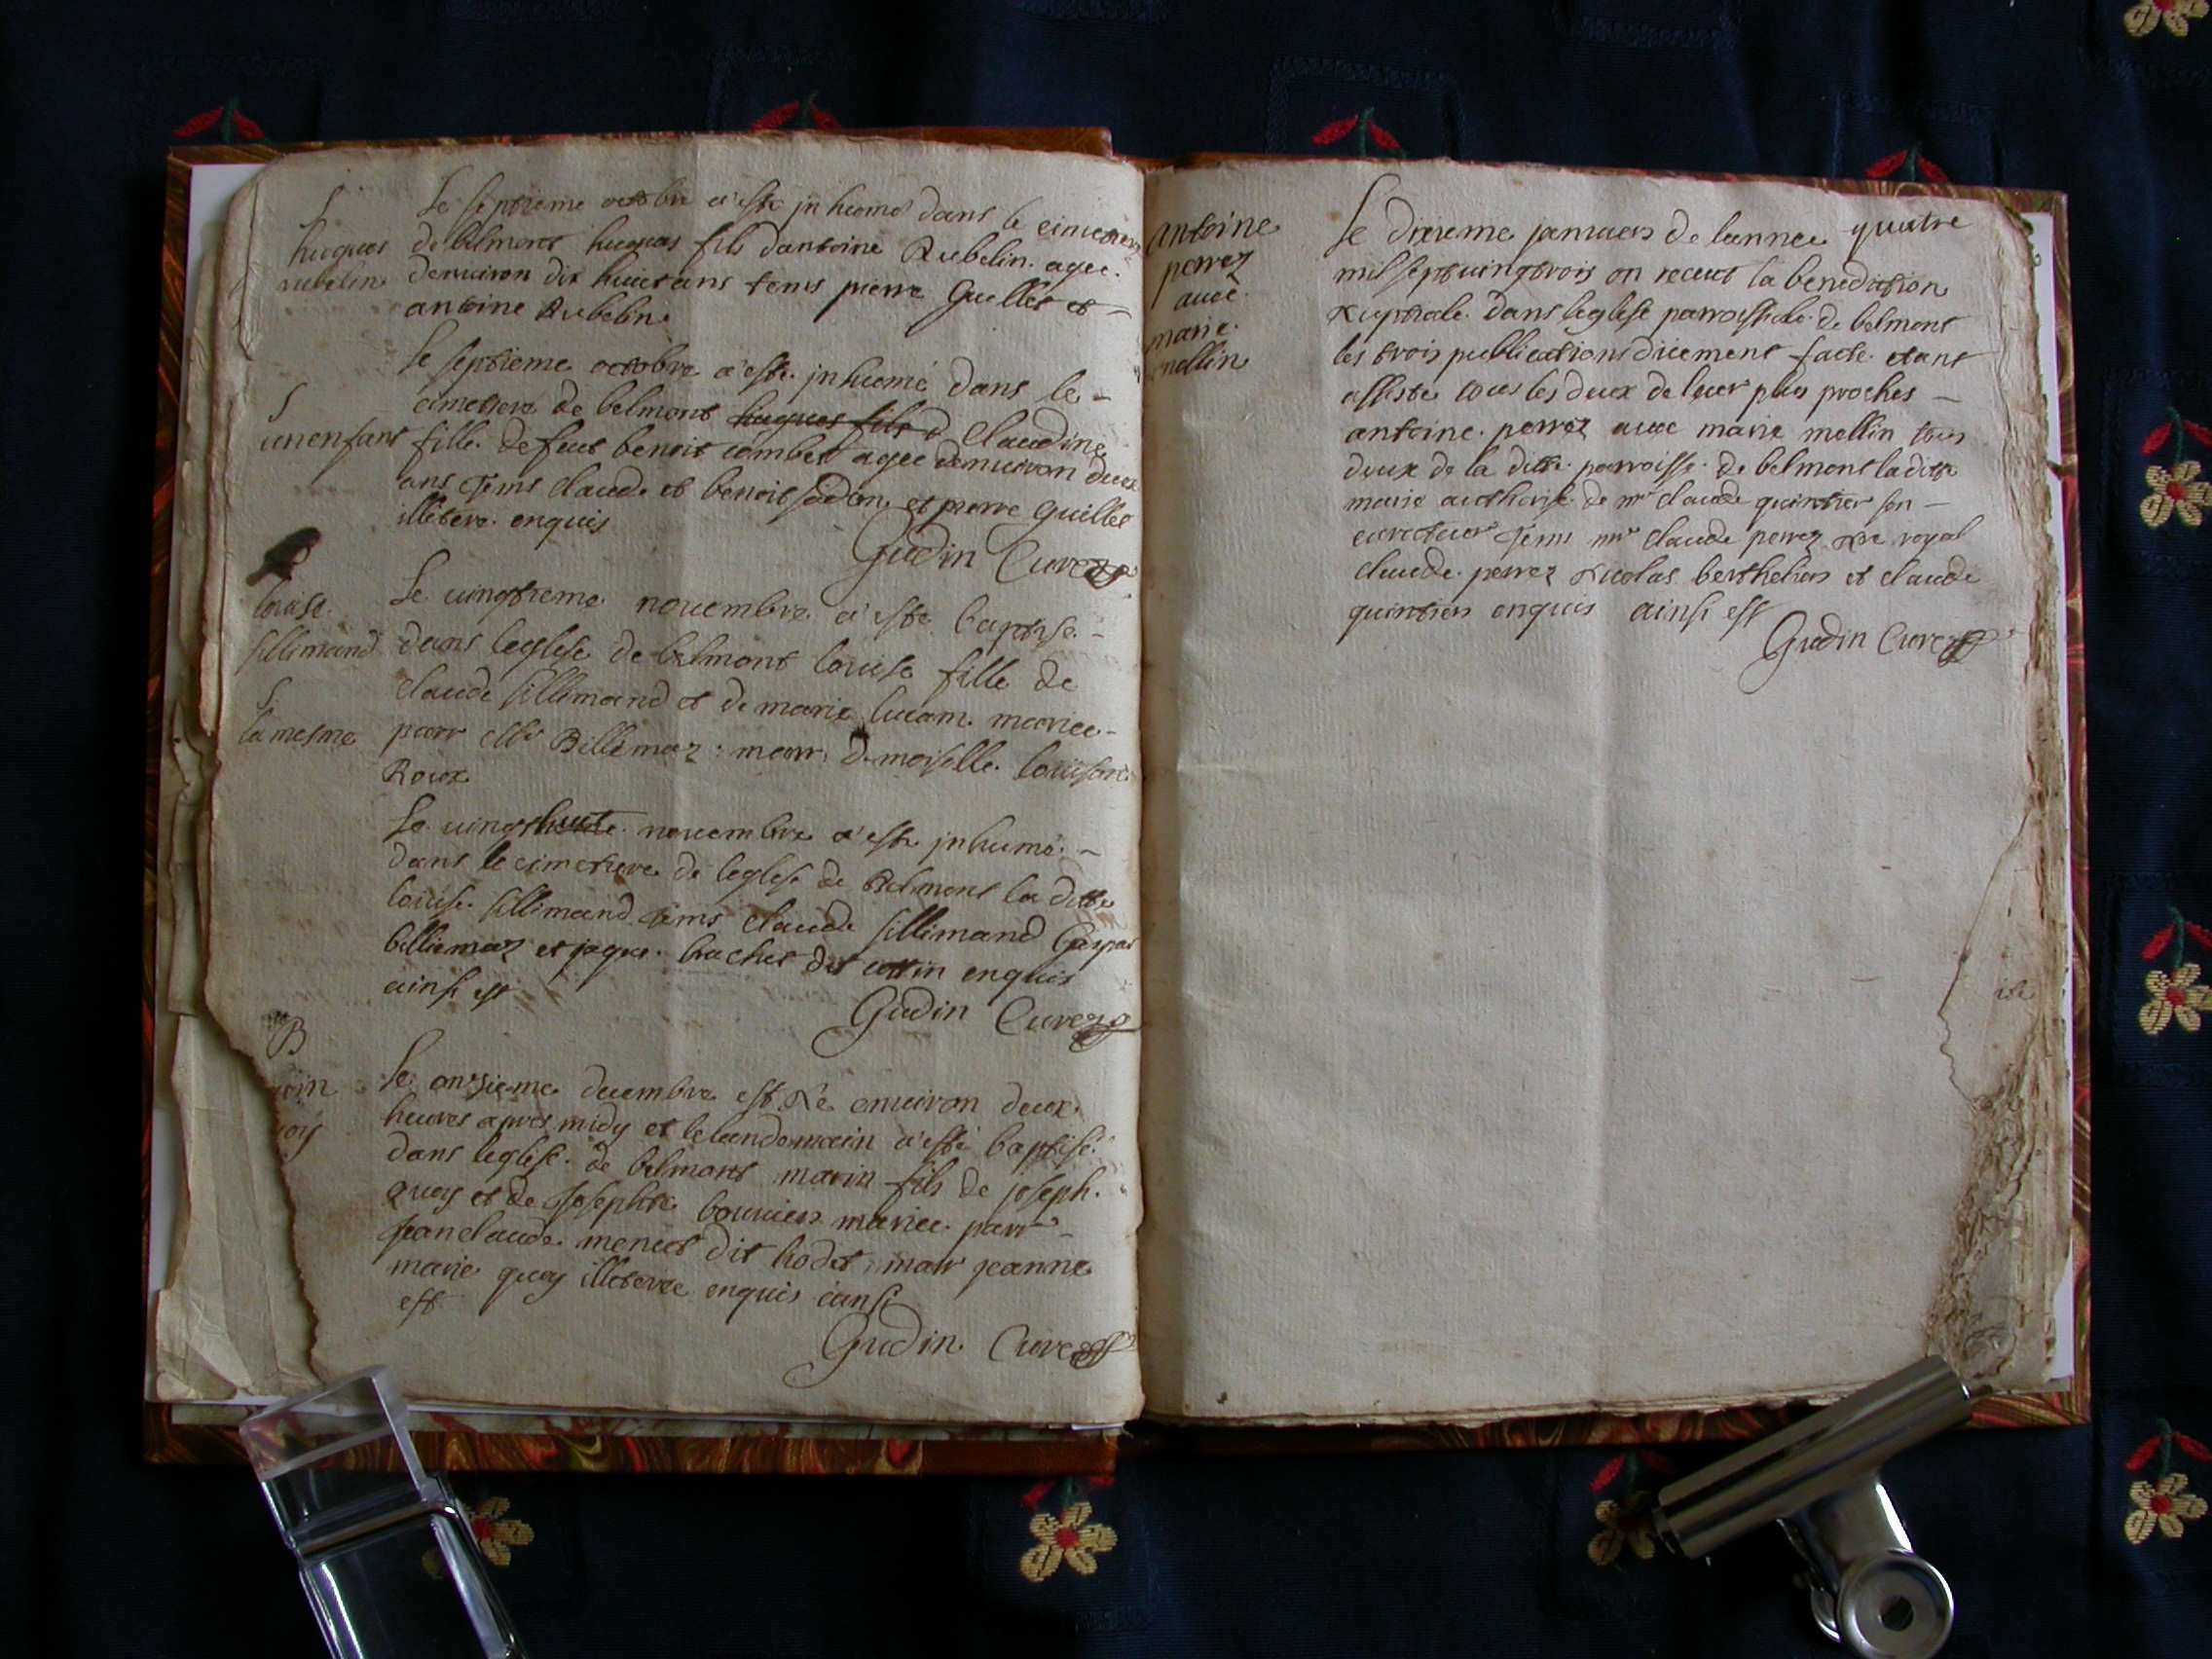 S
hugues
rubelin
Le septieme octobre a esté jnhumé dans le cimetiere
de belmont hugues fils dantoine Rubelin agee
denuiron dix huict ans tems pierre Guillet et
antoine Rubelin
S
un enfant
Le septieme octobre a esté jnhumé dans le
cimetiere de belmont hugues fils d Claudine
fille de feut benoit combet agee denuiron deux
ans tems claude et benoit et pierre Guillet
illiteré enquis
Gudin Curé
louise
sillimand
Le uingtieme nouembre a esté baptisé
dans leglise de belmont louise fille de
claude sillimand et de marie lucam mariee
parr Billemaz marr demoiselle louison
Roux
S
la mesme
Le uingthuict nouembre a esté jnhumé
dans le cimetiere de leglise de Belmont la ditte
louise sillimand tems claude sillimand Gaspar
billiemaz et jaque brachet dit cottin enquis
ainsi est
Gudin Curé
B
Le onzieme decembre est né enuiron deux
heures apres midy et le landemain a esté baptisé
dans leglise de belmont marin fils de joseph
quoy et de josephte bouuier mariee parr
jean claude menut dit hodet marr jeanne
marie quoy illiteree enquis ainsi
est
Gudin Curé
antoine
perrez
auec
marie
mellin
Le dixieme januier de lannee quatre
mil sept uingt trois on receut la benediction
nuptiale dans leglise parroissiale de belmont
les trois publications ducment facte etant
assisté tous les deux de leur plus proches
antoine perrez auec marie mellin tous
deux de la ditte parroisse de belmont la ditte
marie authorisé de mr claude quintier son
curateur tems mr claude perrez nre royal
claude perrez nicolas berthelier et claude
quintier enquis ainsi est
Gudin Curé